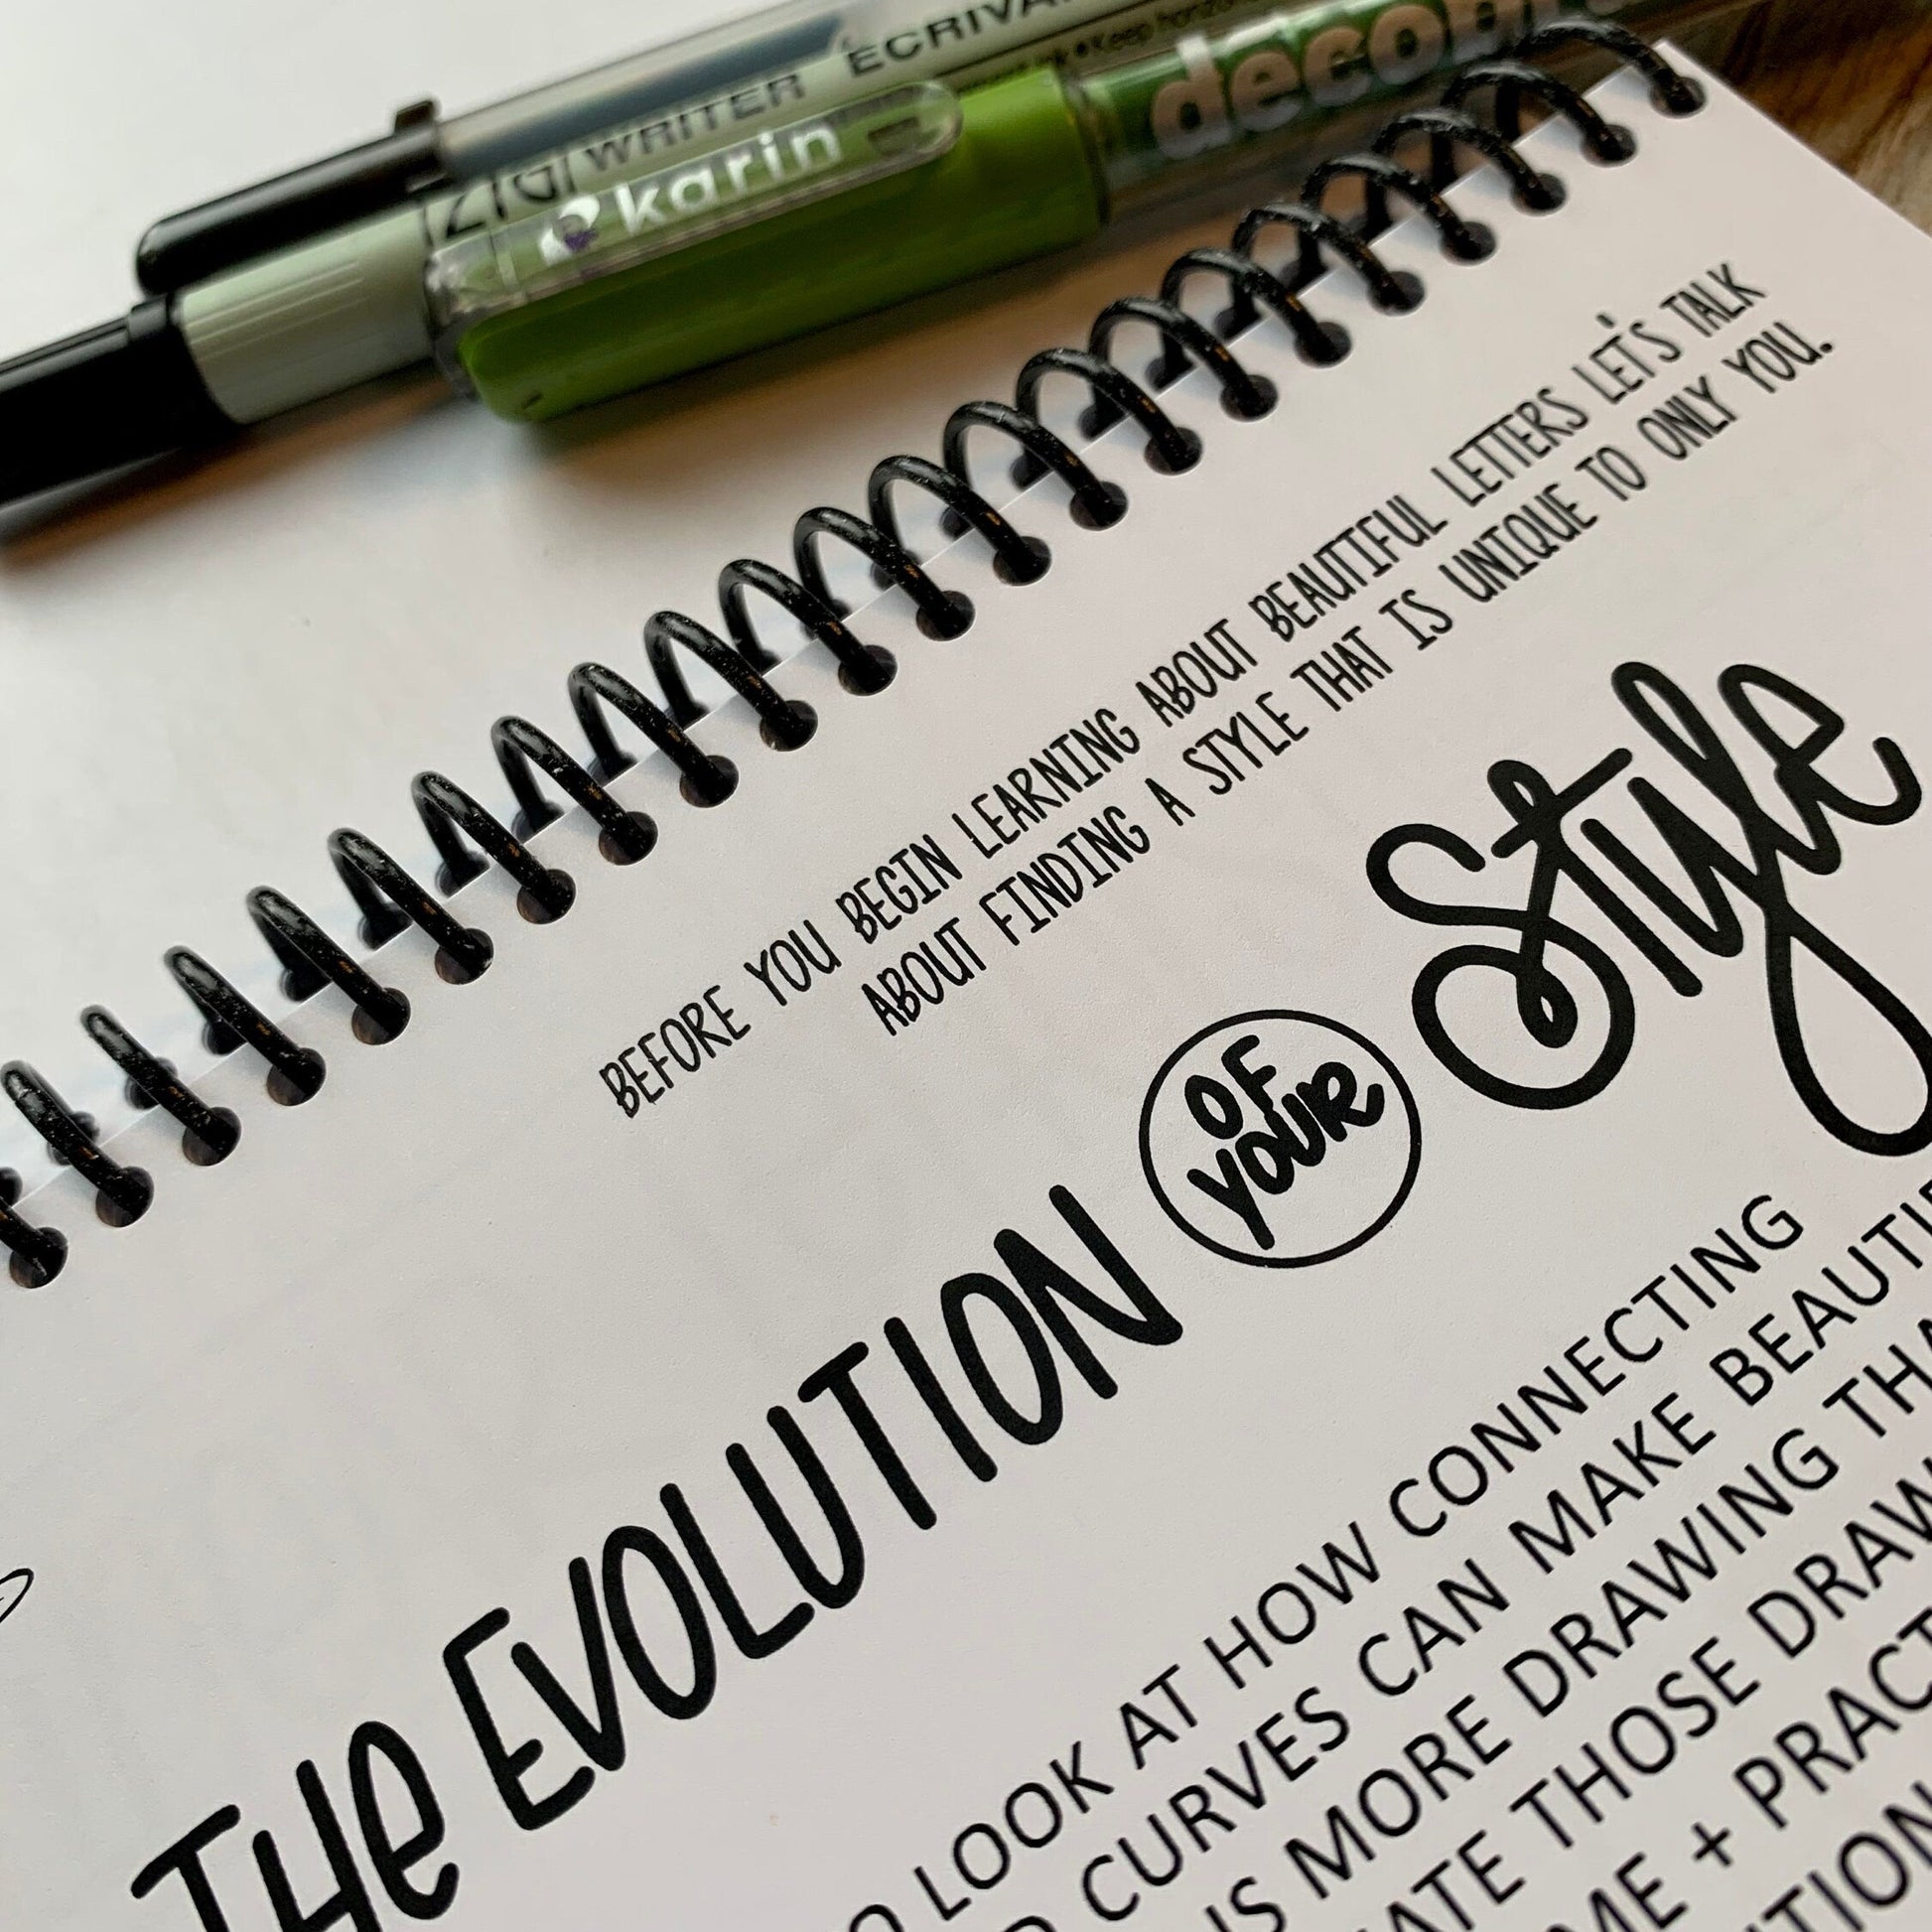 WRITER ECRIVA
ZIG
karin
Keep horizo
BEFORE YOU BEGIN LEARNING ABOUT BEAUTIFUL LETTERS LET'S TALK
ABOUT FINDING A STYLE THAT IS UNIQUE TO ONLY YOU.
THe EVOLUTION OF YOUR Style
O LOOK AT HOW CONNECTING
D CURVES CAN MAKE BEAUTI
IS MORE DRAWING THA
ATE THOSE DRAW
ME + PRACT
TION